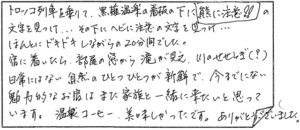 トロッコ列車を乗りて、黒薙温泉の看板の下に熊に注意!!の
文字を見つけ…その下にヘビに注意の文字を見つけ…
ほんとにドキドキしながらの20分間でした。
宿に着いたら、部屋の窓から滝が見え、川のせせらぎ(?)
日常にはない自然のひとつひとつが新鮮で、今までにない
魅力的なお宿はまた家族と一緒に来たいと思って
います。温泉コーヒー、美味しかったです。ありがとうございました。